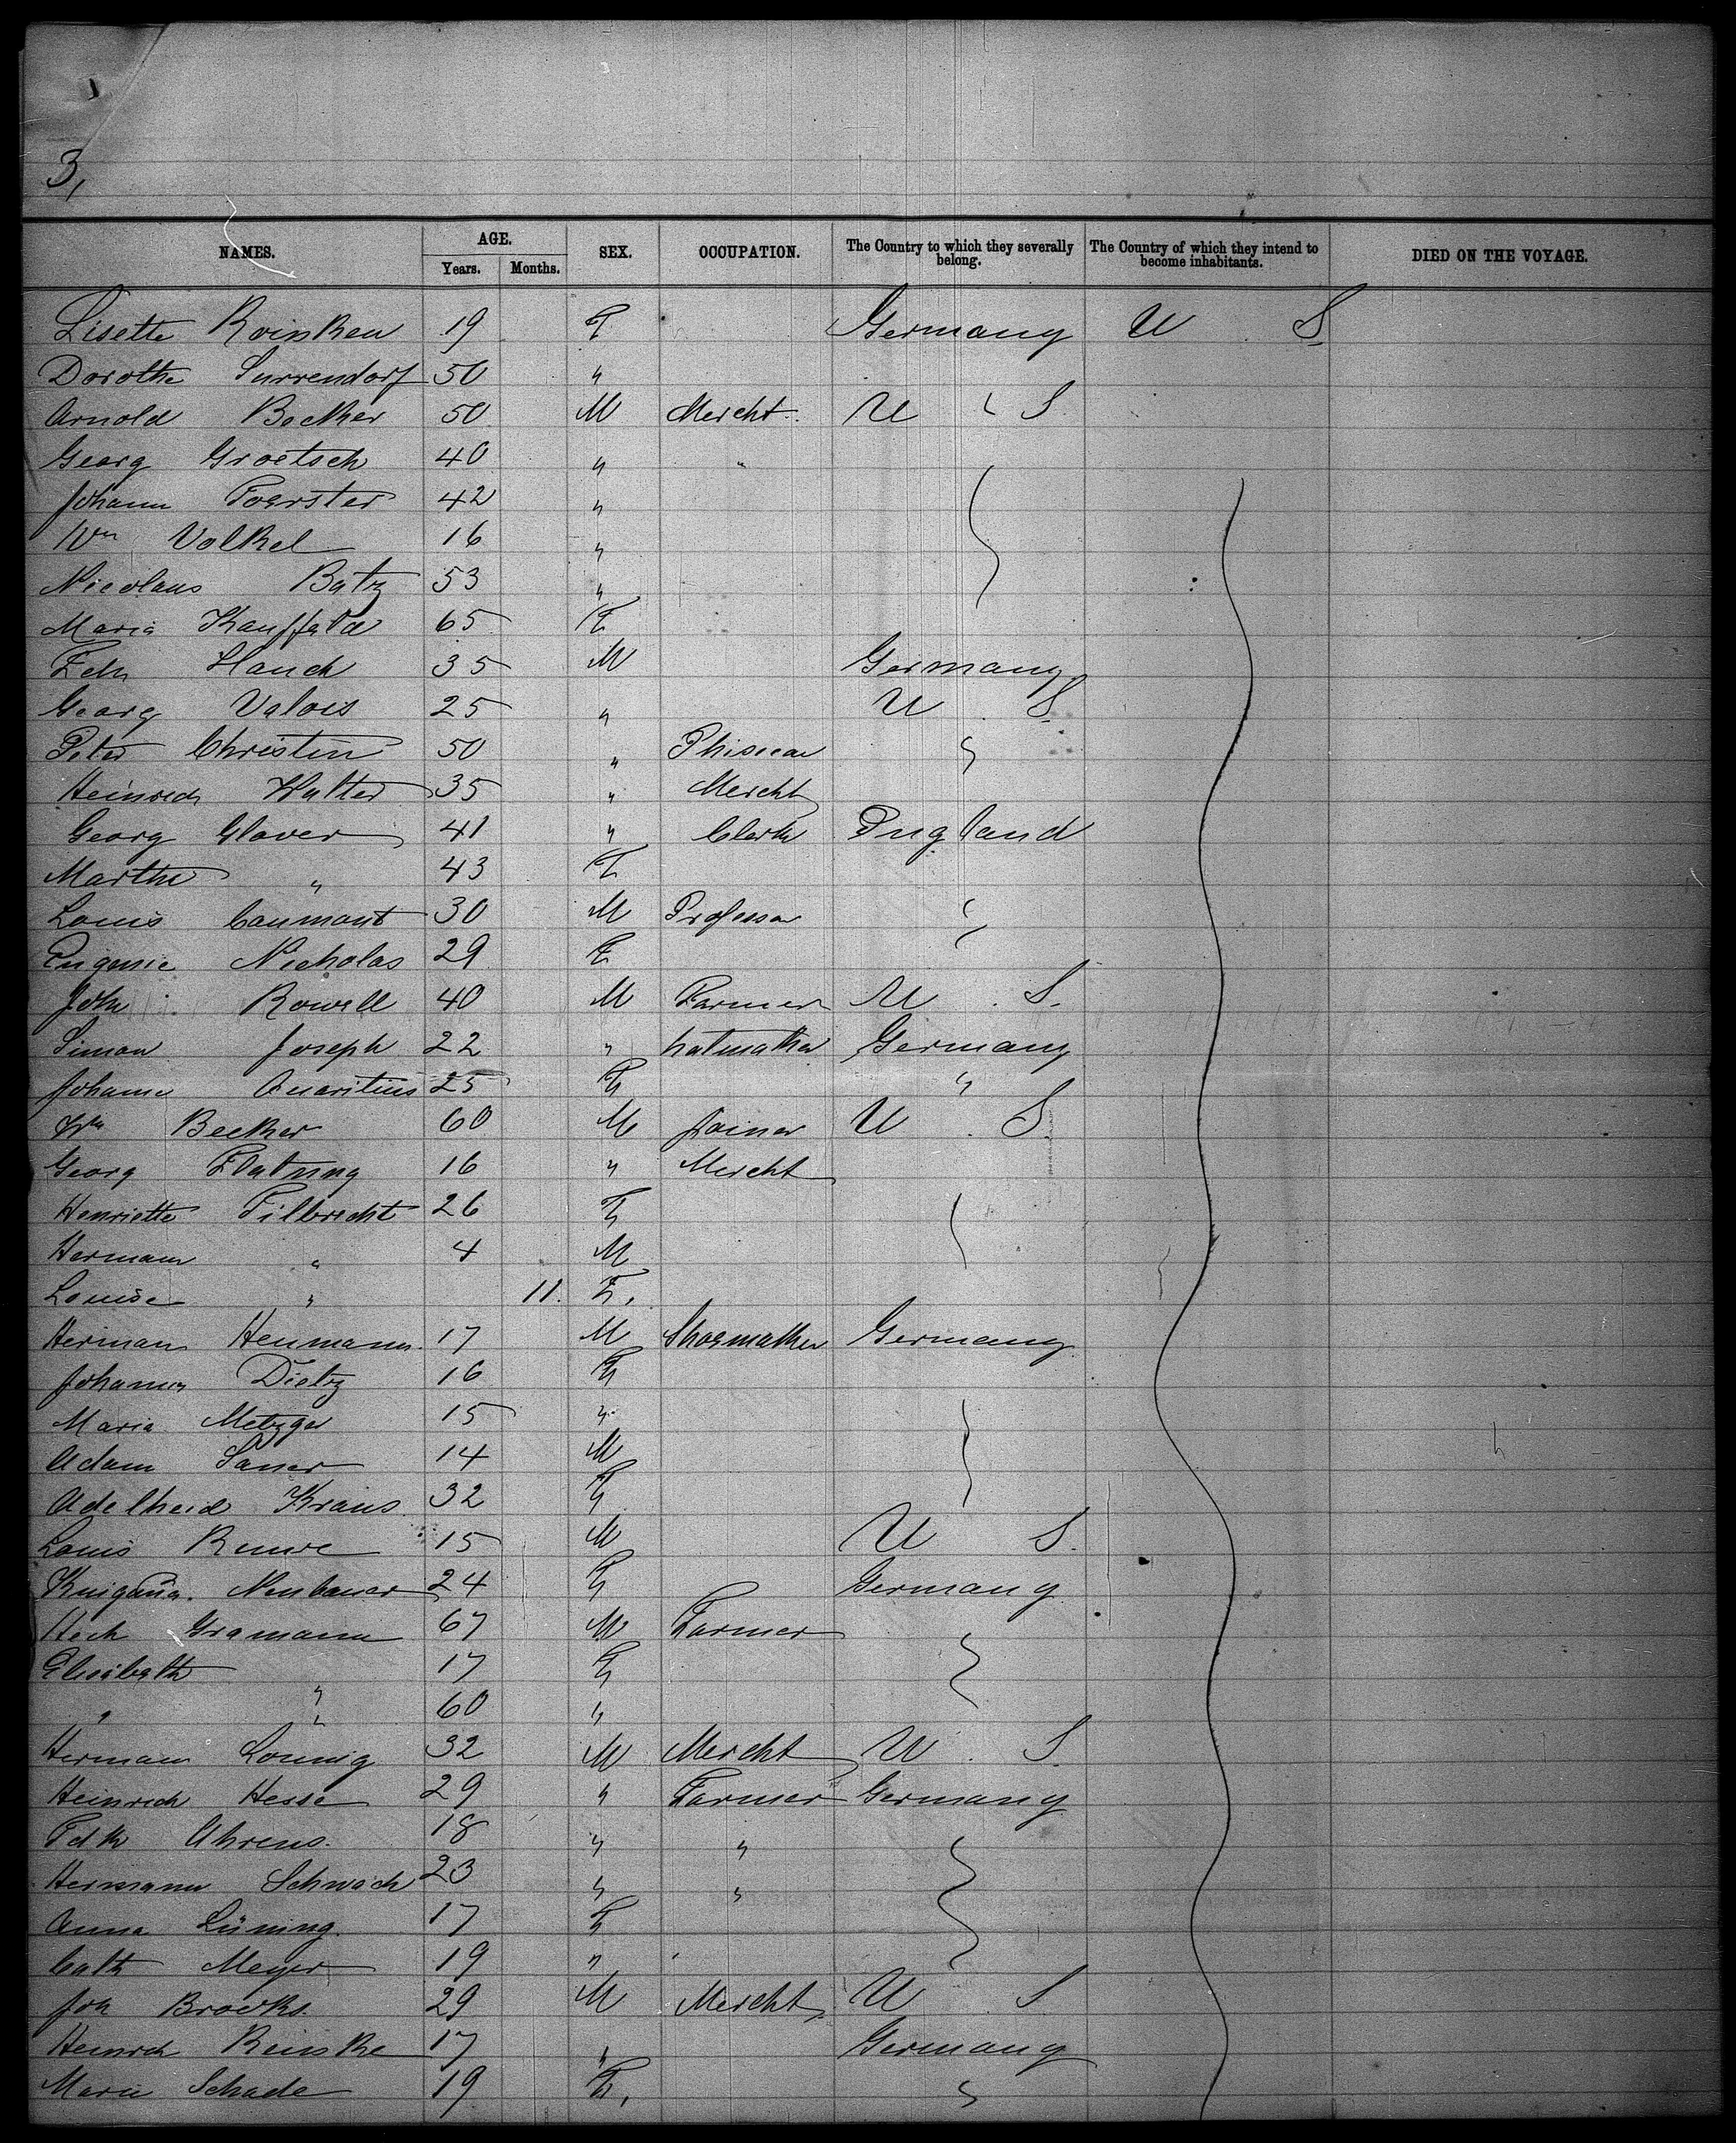 3,
NAMES. AGE. Years. Months. SEX. OCCUPATION. The Country to which they severally belong. The Country of which they intend to become inhabitants. DIED ON THE VOYAGE.
Lisette 19 F Germany U S
Dorothe Surrendorf 50 "
Arnold Becker 50 M Mercht. U S
Georg Groetsch 40 " "
Johann Foerster 42 "
Wm Volkel 16 "
Nicolaus Batz 53 "
Maria 65 F
Hauch 35 M Germany
Georg Valois 25 " U S
Peter Christin 50 " Phisican "
Heinrich Walter 35 " Mercht
Georg Glover 41 " Clerk England
Marthe " 43 F
Louis Caumont 30 M Professor "
Eugenie Nicholas 29 F
John Rowell 40 M Farmer U S.
Simon Joseph 22 " Germany
Johanna Quaritius 25 F "
Wm Becker 60 M Joiner U S
Georg 16 " Mercht
Henriette Filbrecht 26 F
Hermann " 4 M
Louise " 11. F.
Herman Heumann 17 M Germany
Johanna Dietz 16 F
Maria Metzger 15 "
Adam Sauer 14 M
Adelheid Kraus 32 F
Louis 15 M U S.
Neubauer 24 F Germany
Gramann 67 M Farmer
Elisabeth " 17 F
" " 60 "
Hermann 32 M Mercht U S
Heinrich Hesse 29 " Farmer Germany
Fdk Ahrens. 18 " "
Hermann Schwach 23 " "
Anna Lüning. 17 F
Cath Meyer 19 "
Joh 29 M Mercht U S
Heinrich Reinke 17 " Germany
Marie Schade 19 F. "